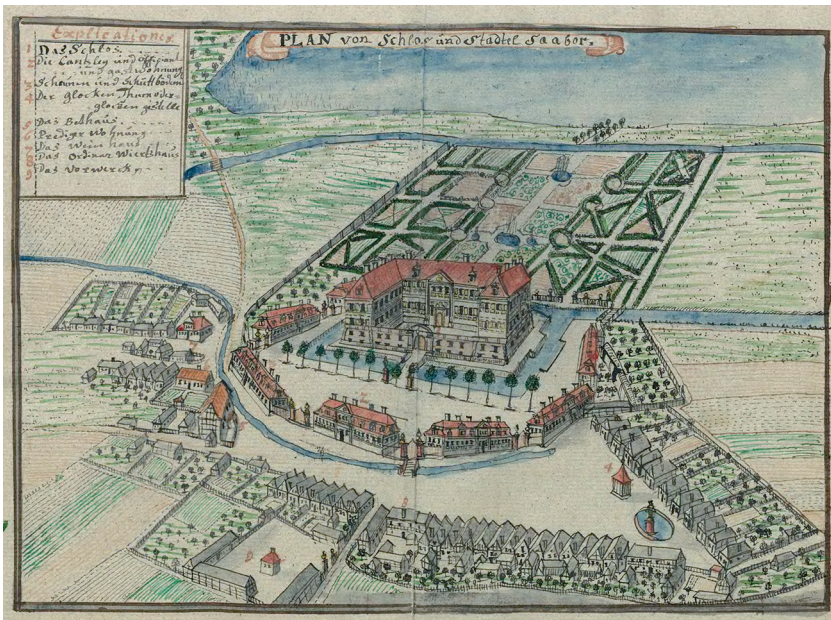 PLAN von Schlos und Stadtel Saabor.
Explicationes
1 Das Schlos
2 Die Cantzley und Officiant
und gast wohnung
3 Scheunen und Schüttboden
4 Der Glocken Thurn oder
glocken gestelle
5 Das Bethaus
6 Prediger Wohnung
7 Das Wein haus
8 Das Ordinar Wirtshaus
9 Das Vorwerck
4